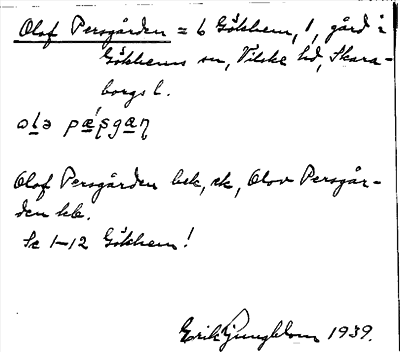 Olof Persgården = 6 Gökhem, 1, gård i
Gökhems sn, Vilske hd, Skara-
borgs l.
ola pæ̀ʂgaɳ
Olof Persgården bek, ek, Olov Persgår-
den kb.
Se 1-12 Gökhem!
Erik Ljungblom 1939.